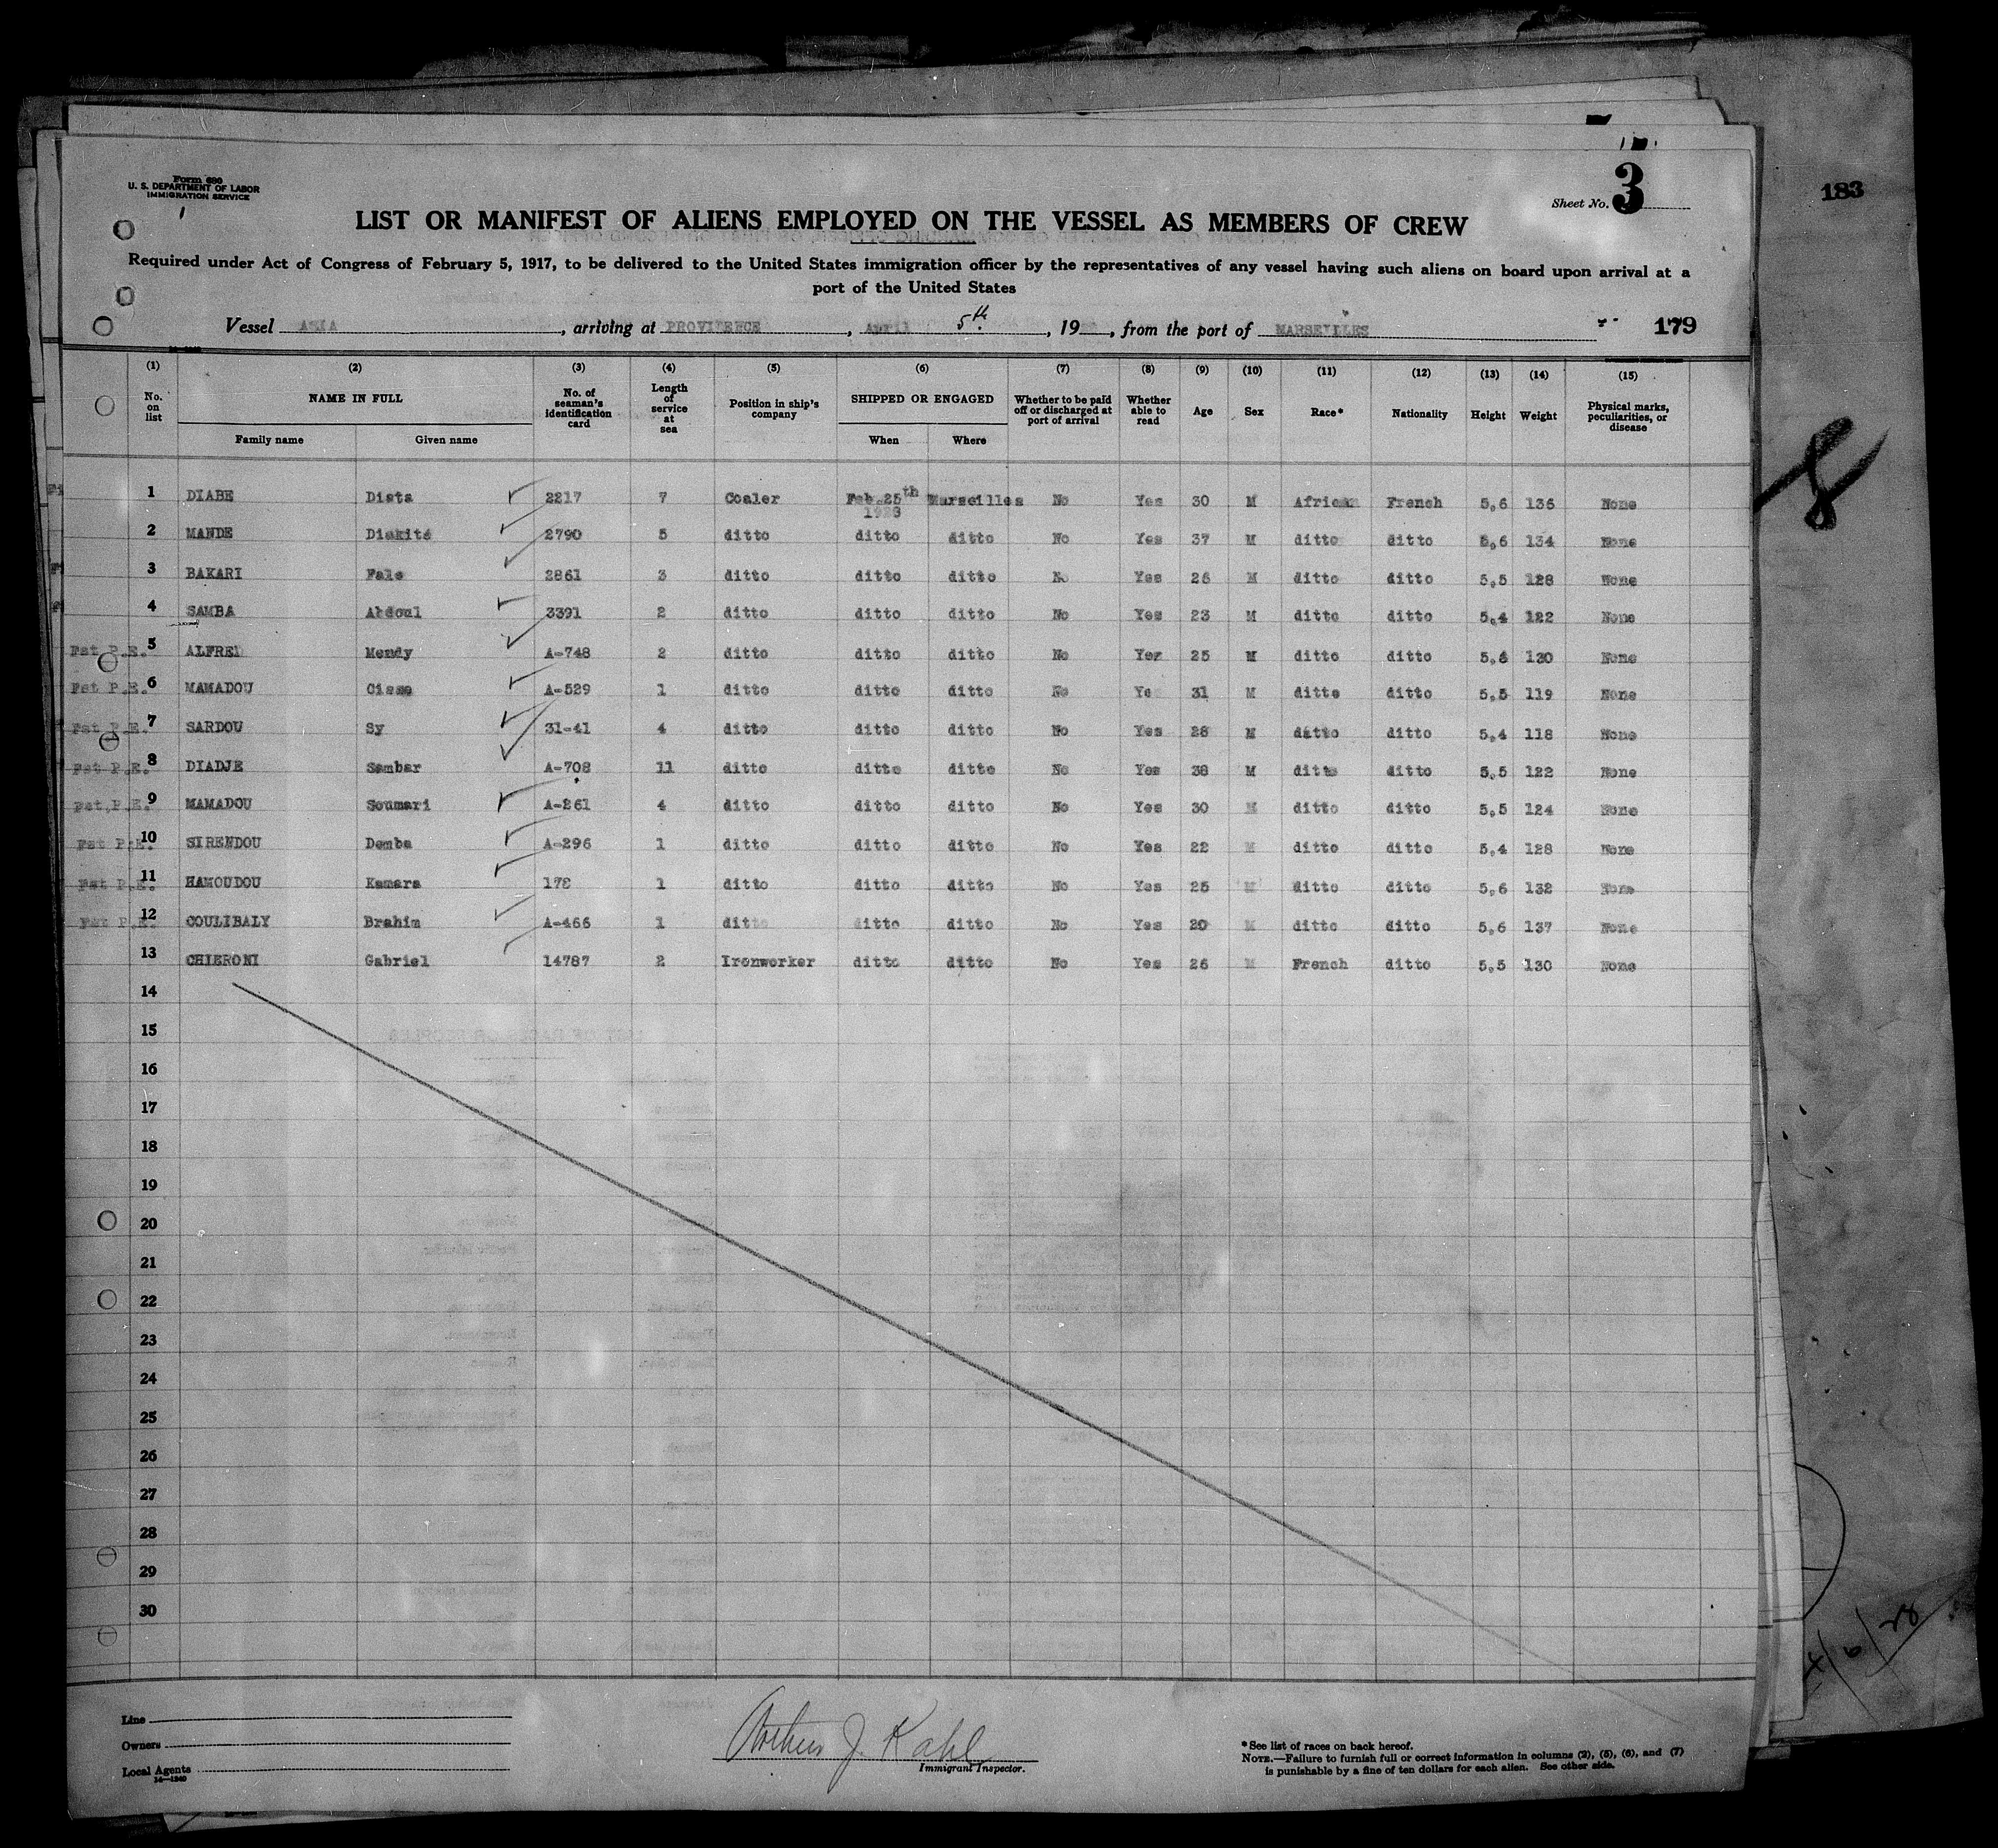 Form 680
U. S. DEPARTMENT OF LABOR
IMMIGRATION SERVICE
Sheet No. 3
183
LIST OR MANIFEST OF ALIENS EMPLOYED ON THE VESSEL AS MEMBERS OF CREW
Required under Act of Congress of February 5, 1917, to be delivered to the United States immigration officer by the representatives of any vessel having such aliens on board upon arrival at a
port of the United States
Vessel ASIA, arriving at PROVIDENCE, April 5th, 19, from the port of MARSEILLES
179
(1) (2) (3) (4) (5) (6) (7) (8) (9) (10) (11) (12) (13) (14) (15)
No. on list NAME IN FULL Family name Given name No. of seaman's identification card Length of service at sea Position in ship's company SHIPPED OR ENGAGED When Where Whether to be paid off or discharged at port of arrival Whether able to read Age Sex Race* Nationality Height Weight Physical marks, peculiarities, or disease
1 DIABE Dista 2217 7 Coaler Feb.25th 1928 Marseilles No Yes 30 M African French 5,6 136 None
2 MANDE Diakité 2790 5 ditto ditto ditto No Yes 37 M ditto ditto 5,6 134 None
3 BAKARI Fale 2861 3 ditto ditto ditto No Yes 26 M ditto ditto 5,5 128 None
4 SAMBA Abdoul 3391 2 ditto ditto ditto No Yes 23 M ditto ditto 5,4 122 None
Fst P.E. 5 ALFRED Mendy A-748 2 ditto ditto ditto No Yes 25 M ditto ditto 5,6 130 None
Fst P.E. 6 MAMADOU Cisse A-529 1 ditto ditto ditto No Ye 31 M ditto ditto 5,5 119 None
Fst P.E. 7 SARDOU Sy 31-41 4 ditto ditto ditto No Yes 28 M ditto ditto 5,4 118 None
Fst P.E. 8 DIADJE Sambar A-708 11 ditto ditto ditto No Yes 38 M ditto ditto 5,5 122 None
Fst P.E. 9 MAMADOU Soumari A-261 4 ditto ditto ditto No Yes 30 M ditto ditto 5,5 124 None
Fst P.E. 10 SIRENDOU Demba A-296 1 ditto ditto ditto No Yes 22 M ditto ditto 5,4 128 None
Fst P.E. 11 HAMOUDOU Kamara 178 1 ditto ditto ditto No Yes 25 M ditto ditto 5,6 132 None
Fst P.E. 12 COULIBALY Brahim A-466 1 ditto ditto ditto No Yes 20 M ditto ditto 5,6 137 None
13 CHIERONI Gabriel 14787 2 Ironworker ditto ditto No Yes 26 M French ditto 5,5 130 None
14
15
16
17
18
19
20
21
22
23
24
25
26
27
28
29
30
8
4/6/28
Line
Owners
Local Agents
14—1240
Arthur J. Kahl
Immigrant Inspector.
*See list of races on back hereof.
NOTE.—Failure to furnish full or correct information in columns (2), (5), (6), and (7)
is punishable by a fine of ten dollars for each alien. See other side.